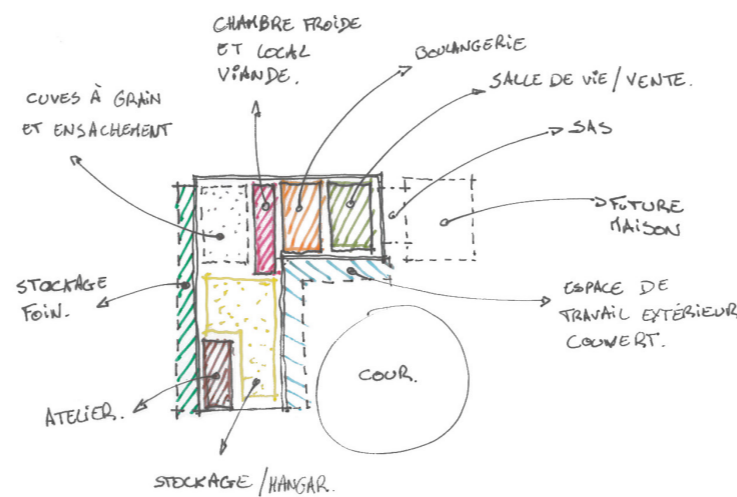 CHAMBRE FROIDE
ET LOCAL
VIANDE.
BOULANGERIE
SALLE DE VIE/VENTE.
CUVES À GRAIN
ET ENSACHEMENT
SAS
FUTURE
MAISON
STOCKAGE
FOIN.
ESPACE DE
TRAVAIL EXTÉRIEUR
COUVERT.
COUR.
ATELIER.
STOCKAGE/HANGAR.